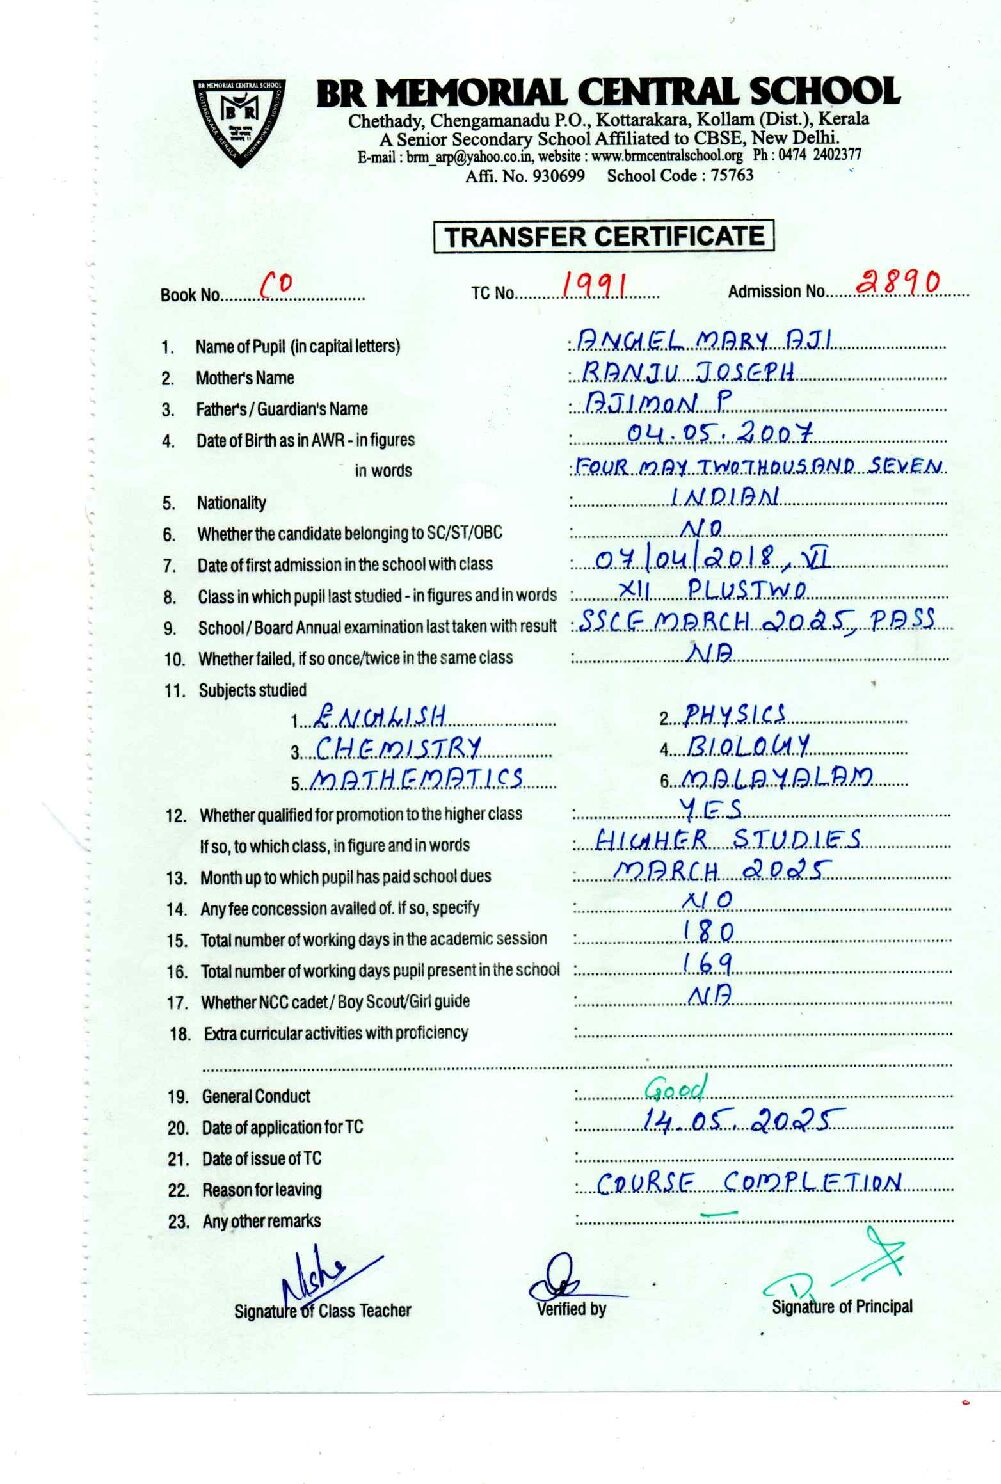 BR MEMORIAL CENTRAL SCHOOL
Chethady, Chengamanadu P.O., Kottarakara, Kollam (Dist.), Kerala
A Senior Secondary School Affiliated to CBSE, New Delhi.
E-mail : brm_arp@yahoo.co.in, website : www.brmcentralschool.org Ph : 0474 2402377
Affi. No. 930699 School Code : 75763
BR MEMORIAL CENTRAL SCHOOL
B R
TRANSFER CERTIFICATE
Book No. CO TC No. 1991 Admission No. 2890
1. Name of Pupil (in capital letters) : ANGEL MARY AJI
2. Mother's Name : RANJU JOSEPH
3. Father's / Guardian's Name : AJIMON P
4. Date of Birth as in AWR - in figures : 04.05.2007
in words : FOUR MAY TWOTHOUSAND SEVEN
5. Nationality : INDIAN
6. Whether the candidate belonging to SC/ST/OBC : NO
7. Date of first admission in the school with class : 07/04/2018, VI
8. Class in which pupil last studied - in figures and in words : XII PLUSTWO
9. School / Board Annual examination last taken with result : SSCE MARCH 2025, PASS
10. Whether failed, if so once/twice in the same class : NA
11. Subjects studied
1. ENGLISH 2. PHYSICS
3. CHEMISTRY 4. BIOLOGY
5. MATHEMATICS 6. MALAYALAM
12. Whether qualified for promotion to the higher class : YES
If so, to which class, in figure and in words : HIGHER STUDIES
13. Month up to which pupil has paid school dues : MARCH 2025
14. Any fee concession availed of. If so, specify : NO
15. Total number of working days in the academic session : 180
16. Total number of working days pupil present in the school : 169
17. Whether NCC cadet / Boy Scout/Girl guide : NA
18. Extra curricular activities with proficiency :
19. General Conduct : Good
20. Date of application for TC : 14.05.2025
21. Date of issue of TC :
22. Reason for leaving : COURSE COMPLETION
23. Any other remarks : —
Nisha
Signature of Class Teacher Verified by Signature of Principal